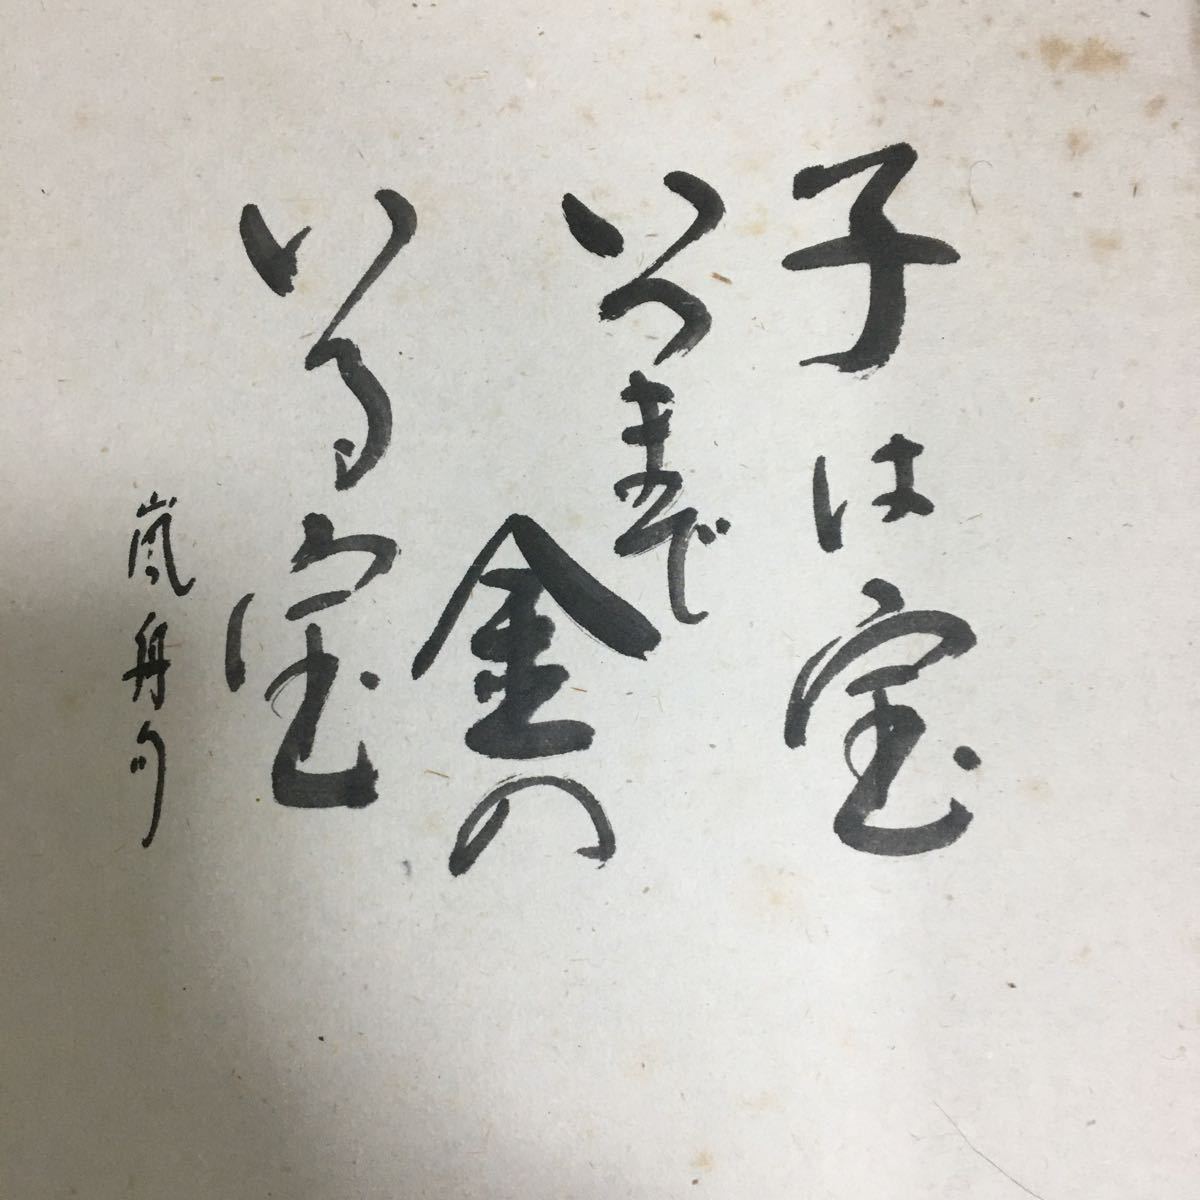 子は宝
いつまで
金の
いる宝
嵐舟